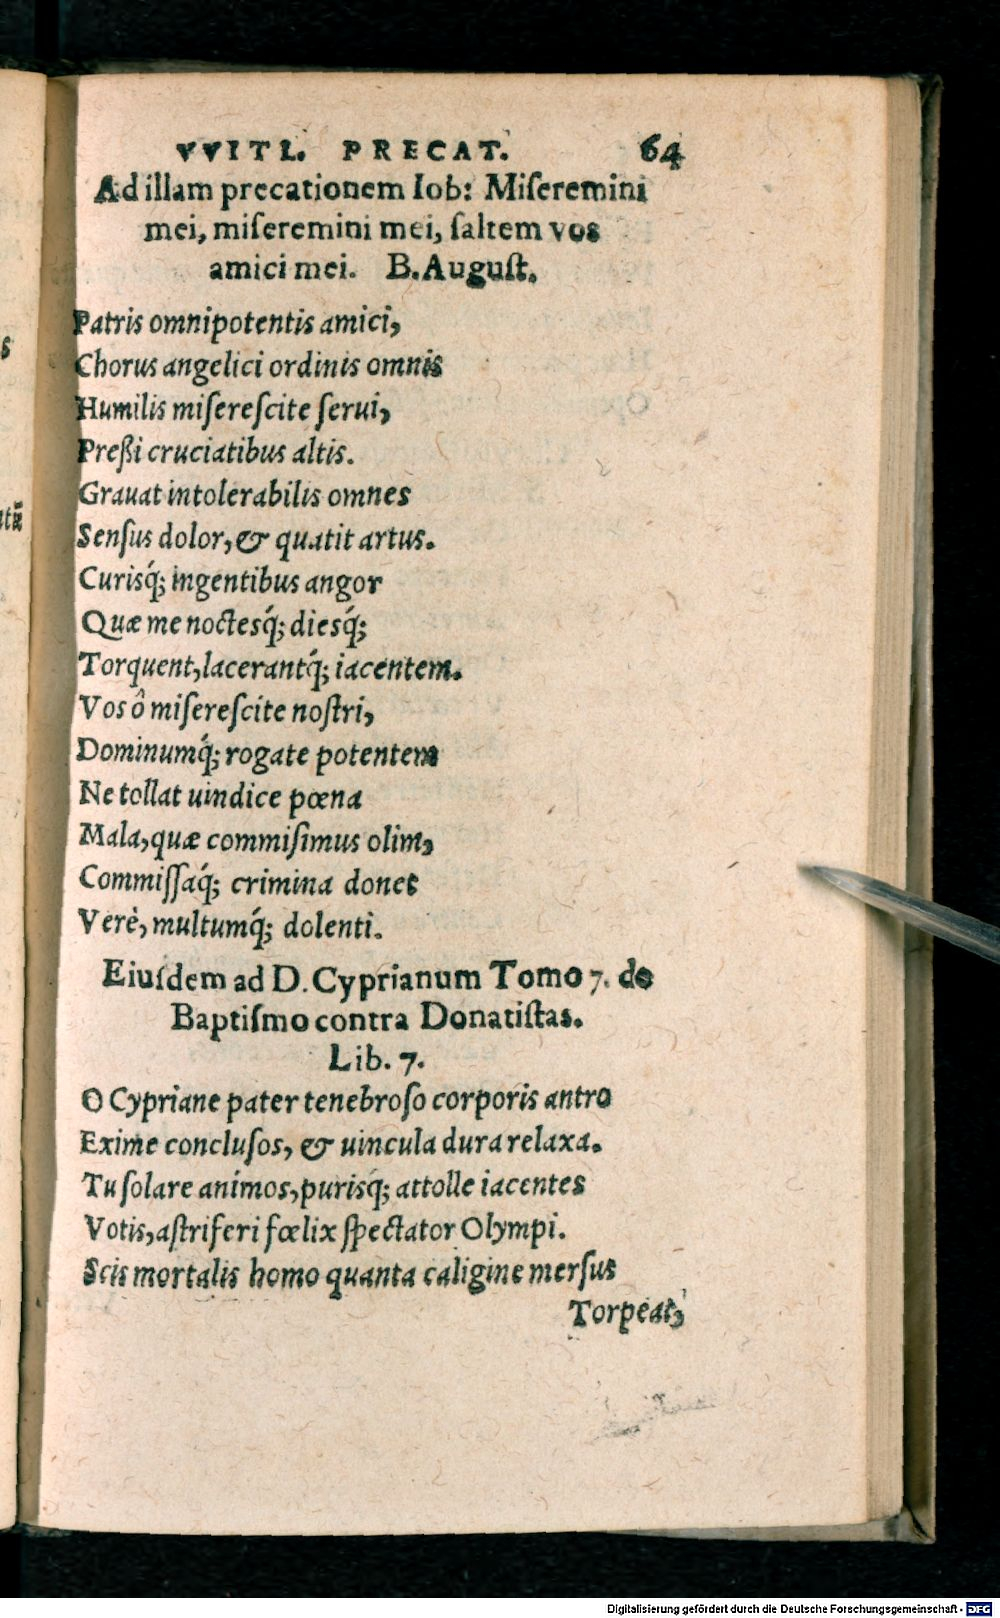 VVITL. PRECAT. 64
Ad illam precationem Iob: Miſeremini
mei, miſeremini mei, ſaltem vos
amici mei. B. Auguſt.
Patris omnipotentis amici,
Chorus angelici ordinis omnis
Humilis miſereſcite ſerui,
Preßi cruciatibus altis.
Grauat intolerabilis omnes
Senſus dolor, & quatit artus.
Curisq́; ingentibus angor
Quæ me noctesq́; diesq́;
Torquent, lacerantq́; iacentem.
Vos ô miſereſcite noſtri,
Dominumq́; rogate potentem
Ne tollat uindice pœna
Mala, quæ commiſimus olim,
Commiſſaq́; crimina donet
Verè, multumq́; dolenti.
Eiuſdem ad D. Cyprianum Tomo 7. de
Baptiſmo contra Donatiſtas.
Lib. 7.
O Cypriane pater tenebroſo corporis antro
Exime concluſos, & uincula dura relaxa.
Tu ſolare animos, purisq́; attolle iacentes
Votis, aſtriferi fœlix ſpectator Olympi.
Scis mortalis homo quanta caligine merſus
Torpeat,
Digitalisierung gefördert durch die Deutsche Forschungsgemeinschaft - DFG